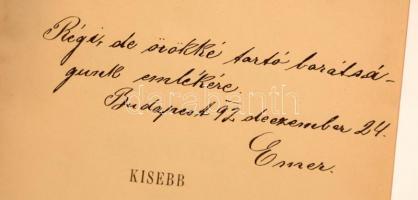 Régi, de örökké tartó barátsá-
gunk emlékére
Budapest 92 deczember 24.
Emer.
KISEBB
darabanth